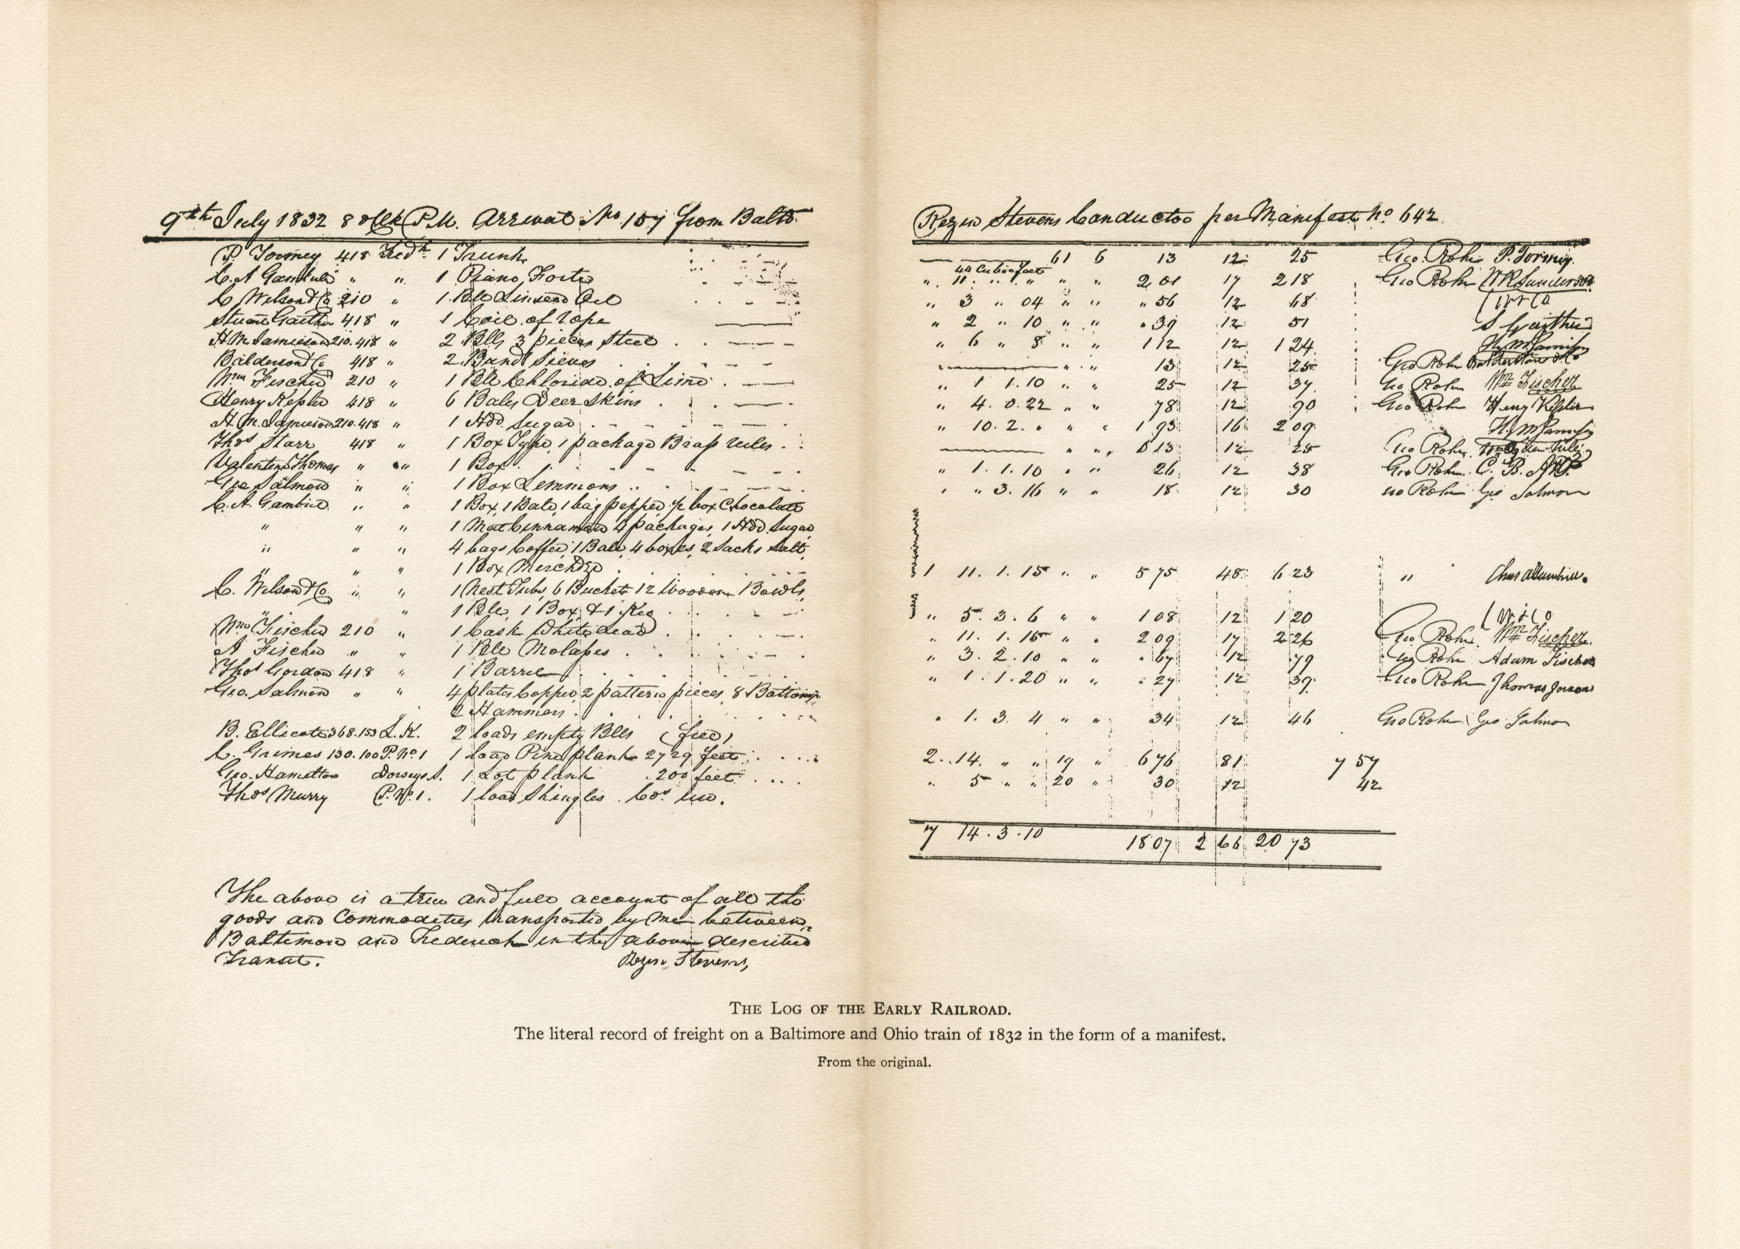 9th July 1832 8 oClk P.M. Arrival No 157 from Balto.
P. Tormey 418 Fredk 1 Trunk
C. A Gambrill " " 1 Piano Forte
C. Wilson & Co 210 " 1 Bbl Linseed Oil
Stuart Gaither 418 " 1 Coil of rope
H. M. Jamieson 210.418 " 2 Blls 3 pieces Steel
Balderson & Co 418 " 2 Band Sieves
Wm Fischer 210 " 1 Bbl Chloride of Lime
Henry Kepler 418 " 6 Bales Deer Skins
H. M. Jamieson 210.418 " 1 Hdd Sugar
Thos Starr 418 " 1 Box Type, 1 package Brass rules
Valentine Thomas " " 1 Box
Geo Salmon " " 1 Box Lemmons
C. A Gambrill " " 1 Box, 1 Bale, 1 bag pepper ½ box Chocolate
" " " 1 Mat Cinnamon 4 packages, 1 Hdd Sugar
" " " 4 bags Coffee, 1 Bale, 4 boxes, 2 Sacks Salt,
" " " 1 Box Merchdze
C. Wilson & Co " " 1 Nest Tubs, 6 Buckets 12 Wooden Bowls,
" " 1 Bble, 1 Box, & 1 Keg
Wm Fischer 210 " 1 Cask White Lead
A Fischer " " 1 Bbl Molasses
Thos Gordon 418 " 1 Barrel
Geo. Salmon " " 4 plates Copper, 2 pattern pieces, 8 Bottoms,
2 Hammers
B. Ellicott 368.153 L. K. 2 loads empty Blls (free)
C. Grimes 130.100 P. No 1 1 load Pine plank 2729 feet
Geo. Hamilton Dorseys S. 1 Lot plank 200 feet
Thos Murry P. No 1. 1 load Shingles Cos use.
The above is a true and full account of all the
goods and Commodities transported by me between
Baltimore and Frederick in the above described
transit. Rezin Stevens,
Rezin Stevens Conductor per Manifest No 642
61 6 13 12 25 Geo. Rohr P. Tormey
44 Cubic feet
" 11. " 1. " " " 2 01 17 2 18 Geo Rohr
" 3 " 04 " " " 56 12 68
" 2 " 10 " " " 39 12 51 S Gaither
" 6 " 8 " " 1 12 12 1 24 H. M Jamison
" " 13 12 25 Geo Rohr
" 1 1.10 " " 25 12 37 Geo Rohr Wm Fischer
" 4. 0. 22 " " 78 12 90 Geo Rohr Henry Kepler
" 10. 2. " " " 1 93 16 2 09 H. M Jamison
" " 13 12 25 Geo Rohr
" 1. 1. 10 " " 26 12 38 Geo Rohr
" " 3. 16 " " 18 12 30 Geo Rohr Geo Salmon
1 11. 1. 15 " " 5 75 48 6 23 "
" 5. 3. 6 " " 1 08 12 1 20 W & Co
" 11. 1. 16 " " 2 09 17 2 26 Geo Rohr Wm Fischer
" 3. 2. 10 " " " 67 12 79 Geo Rohr Adam Fischer
" 1. 1. 20 " " " 27 12 39 Geo Rohr
" 1. 3. 4 " " 34 12 46 Geo Rohr Geo Salmon
2. 14. " " 19 " 6 76 81 7 57
" 5 " " 20 " 30 12 42
7 14. 3. 10 18 07 2 66 20 73
THE LOG OF THE EARLY RAILROAD.
The literal record of freight on a Baltimore and Ohio train of 1832 in the form of a manifest.
From the original.